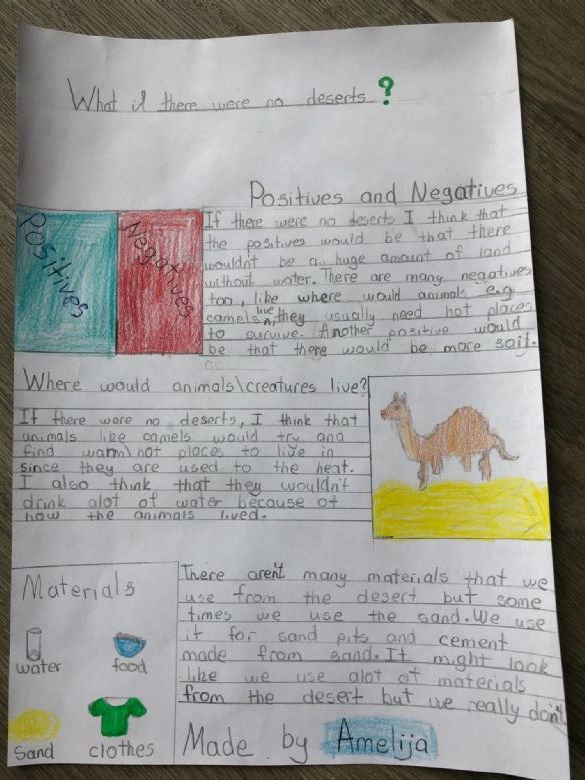 What if there were no deserts?
Positives and Negatives
Positives
Negatives
If there were no deserts I think that
the positives would be that there
wouldn't be a huge amount of land
without water. There are many negatives
too, like where would animals e.g
camels live, they usually need hot places
to survive. Another positive would
be that there would be more soil.
Where would animals\creatures live?
If there were no deserts, I think that
animals like camels would try and
find warm\hot places to live in
since they are used to the heat.
I also think that they wouldn't
drink alot of water because of
how the animals lived.
Materials
water
food
Sand
clothes
There aren't many materials that we
use from the desert but some
times we use the sand. We use
it for sand pits and cement
made from sand. It might look
like we use alot of materials
from the desert but we really don't
Made by Amelija